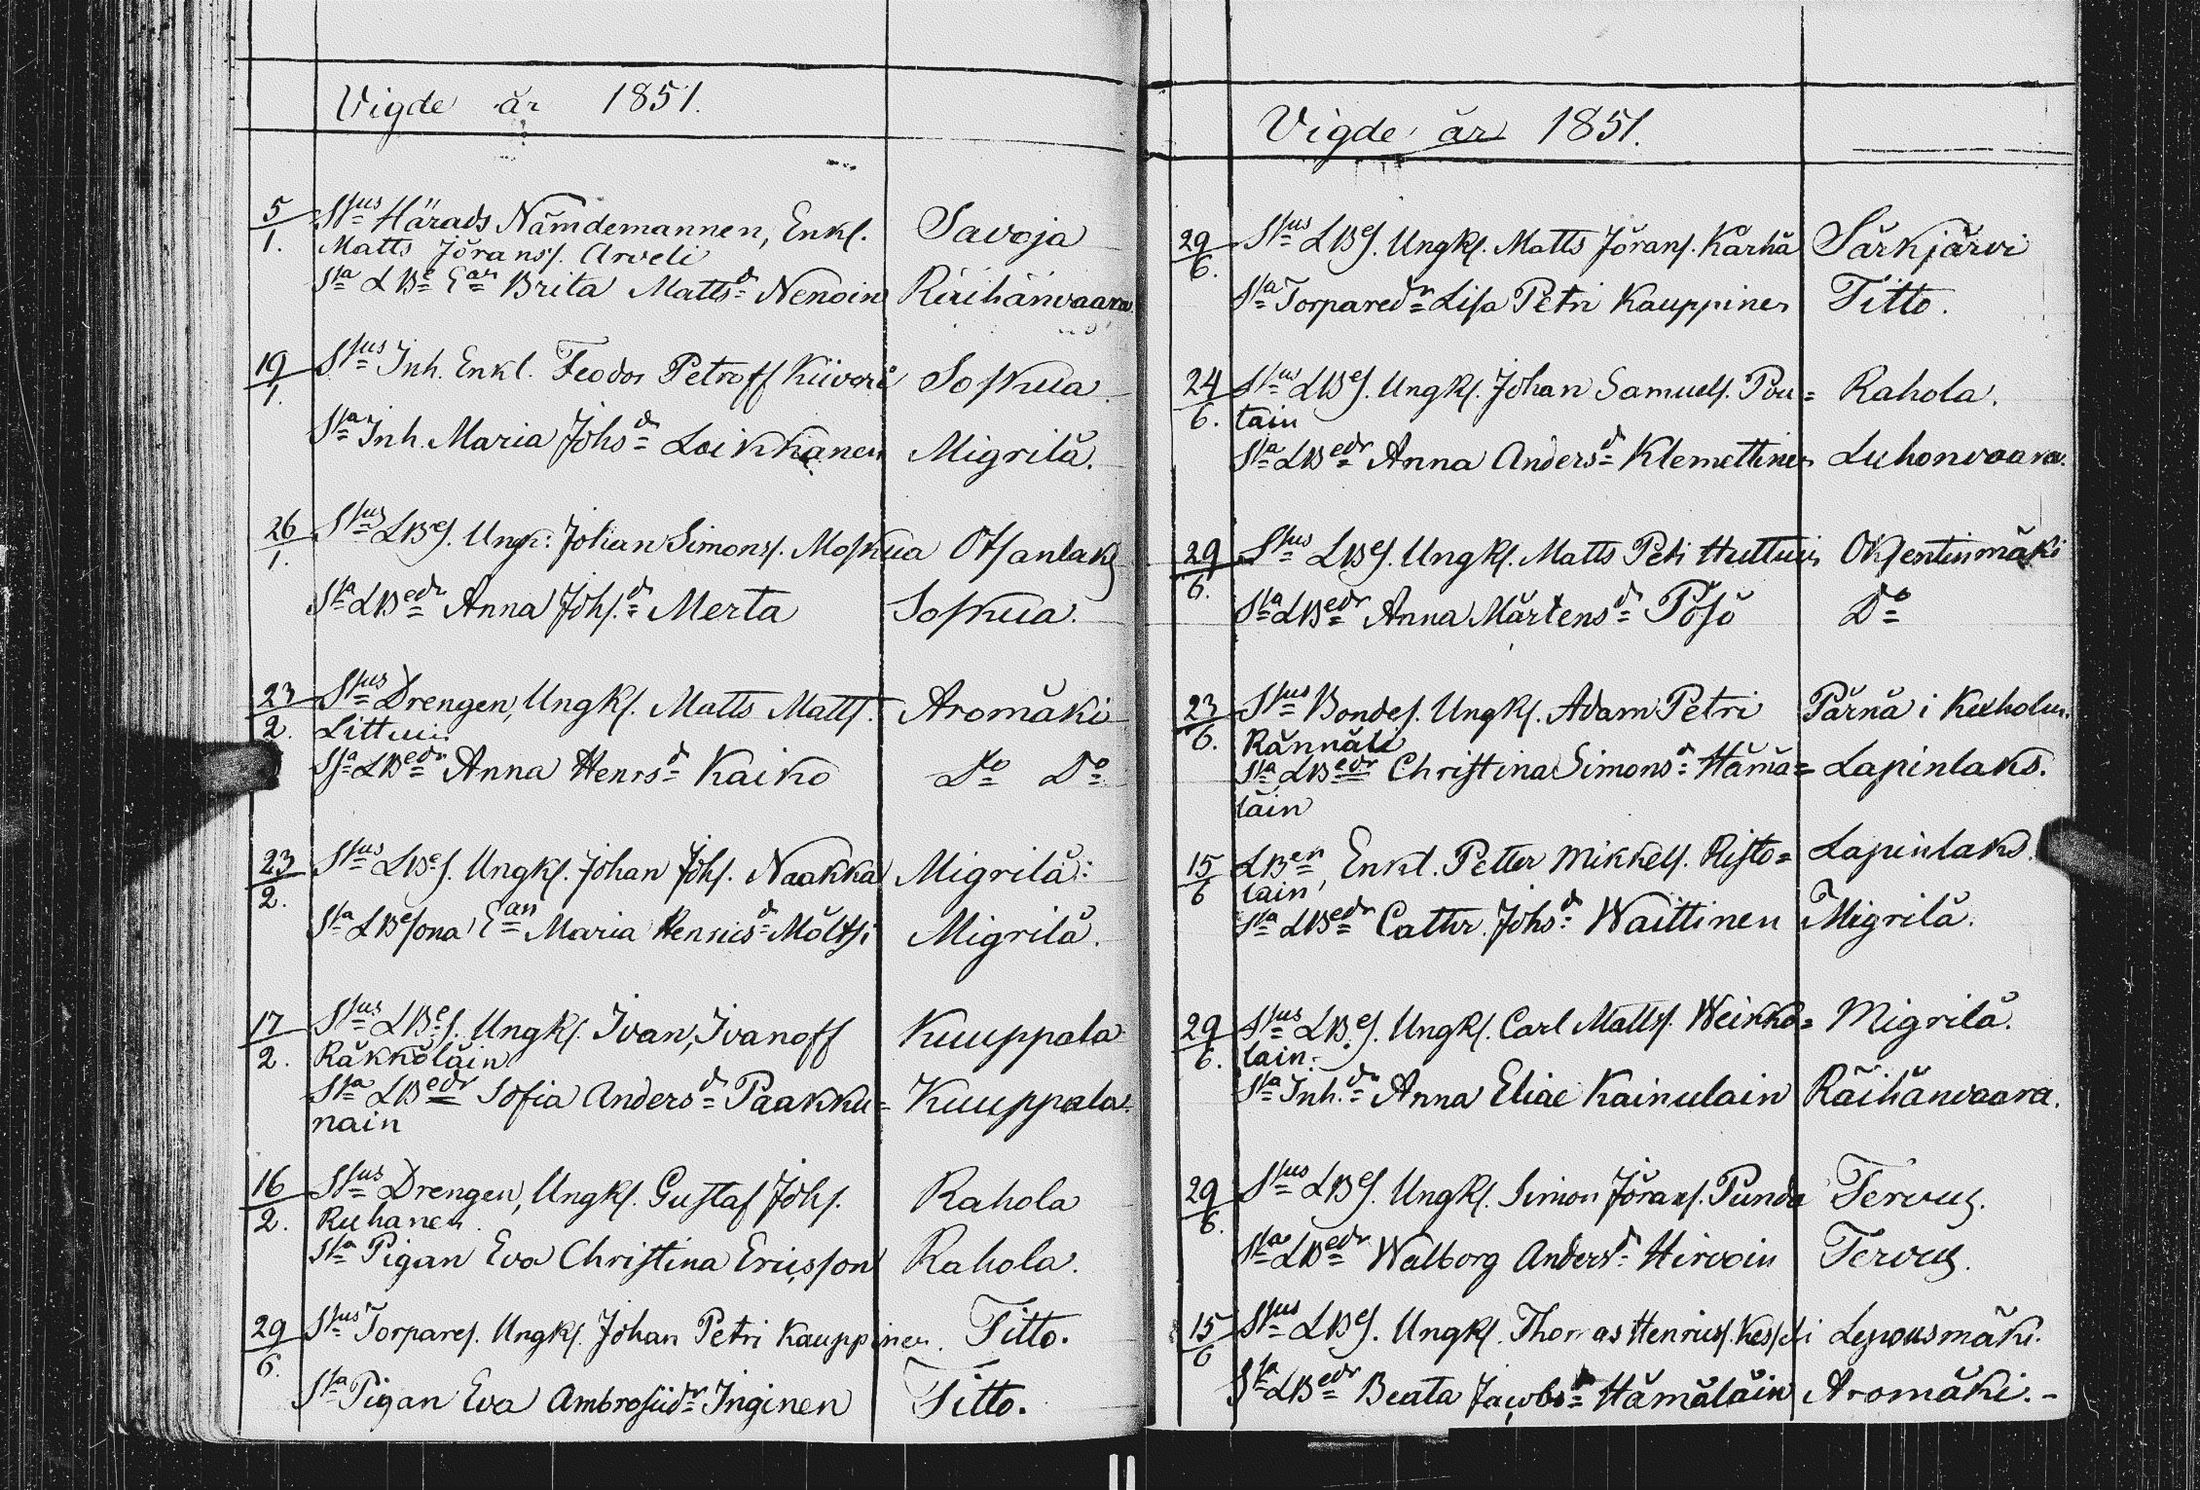 Vigde år 1851.
5/1. Sjus Härads Nämdemannen, Enkl. Savoja
Matts Jöranss. Arveli
Sta LBe Ean Brita Mattsdr Nenoin Räihänvaara
19/1. Sjus Inh. Enkl. Feodor Petroff Kiiveri Soskua.
Sta Inh. Maria Johsdr Loikkanen Migrilä.
26/1. Sjus LBes. Ungk: Johan Simonss. Moskua Otsanlax
Sta LBedr Anna Johs.dr Merta Soskua.
23/2. Sjus Drengen, Ungks. Matts Matts. Aromäki
Littuin
Sta LBedr Anna Henrsdr Kaiko Do Do
23/2. Sjus LBes. Ungks. Johan Johs. Naakka Migrilä:
Sta LBesona Ean Maria Henricsdr Möltsi Migrilä.
17/2. Sjus LBes. Ungks. Ivan, Ivanoff Kuuppala
Räkköläin
Sta LBedr Sofia Andersdr Paakku= Kuuppala.
nain
16/2. Sjus Drengen, Ungks. Gustaf Johs. Rahola
Ruhanen.
Sta Pigan Eva Christina Ericsson Rahola.
29/6. Sjus Torpares. Ungks. Johan Petri Kauppinen. Titto.
Sta Pigan Eva Ambrosiidr Inginen Titto.
Vigde år 1851.
29/6. Sjus LBes. Ungks. Matts Jörans. Karhä Särkjärvi
Sta Torparedr Lisa Petri Kauppinen Titto.
24/6. Sjus LBes. Ungks. Johan Samuels. Pou= Rahola.
tain
Sta LBedr Anna Andersdr Klemettinen Luhonvaara.
29/6. Sjus LBes. Ungks. Matts Petri Huttuin Oksentinmäki
Sta LBedr Anna Mårtensdr Pösö Do
23/6. Sjus Bondes. Ungks. Adam Petri Pärnä i Kexholm.
Rännäli
Sta LBedr Christina Simonsdr Hämä= Lapinlaks.
läin
15/6 LBen, Enkl. Petter Mikkels. Risto= Lapinlaks.
lain
Sta LBedr Cathr. Johsdr Waittinen Migrilä.
29/6. Sjus LBes. Ungks. Carl Matts. Weikko= Migrilä.
lain.
Sta Inh.dr Anna Eliae Kainulain Räihänvaara.
29/6. Sjus LBes. Ungks. Simon Jörans. Punda Tervus.
Sta LBedr Walborg Andersdr Hirvoin Tervus.
15/6 Sjus LBes. Ungks. Thomas Henrics. Kesseli Lepousmäki.
Sta LBedr Beata Jacobsdr Hämäläin Aromäki.-